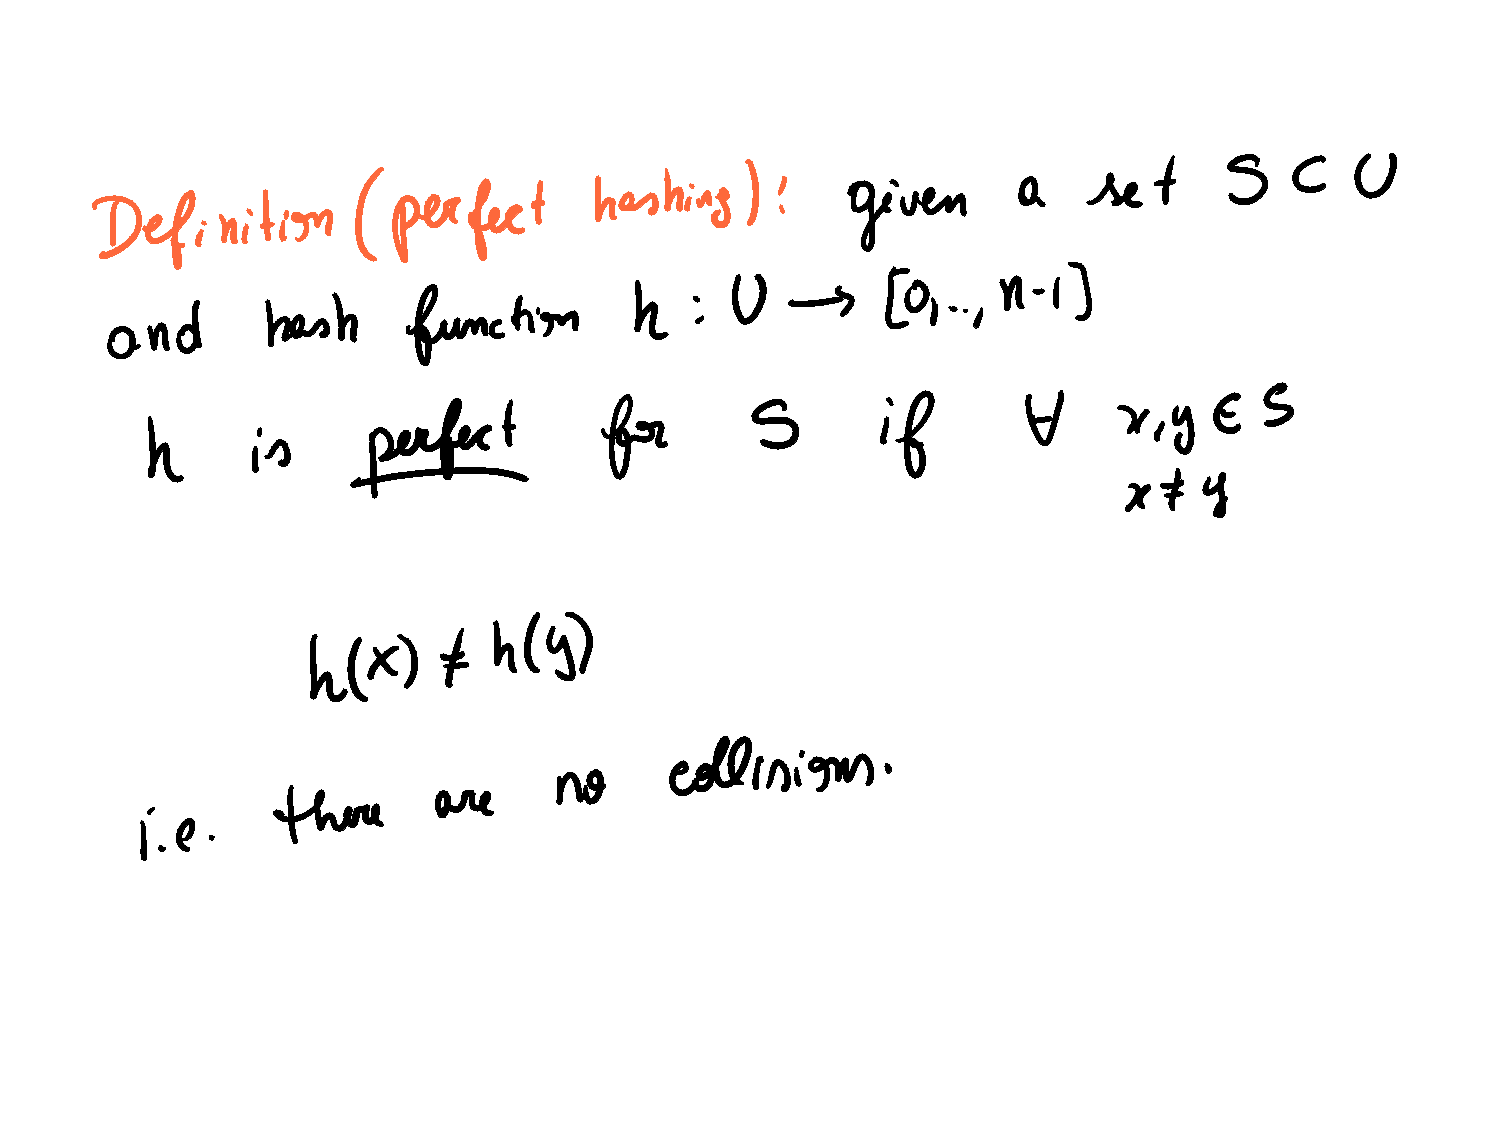 Definition (perfect hashing): given a set S ⊂ U
and hash function h : U → [0,..., n-1]
h is perfect for S if ∀ x,y ∈ S
x ≠ y
h(x) ≠ h(y)
i.e. there are no collisions.